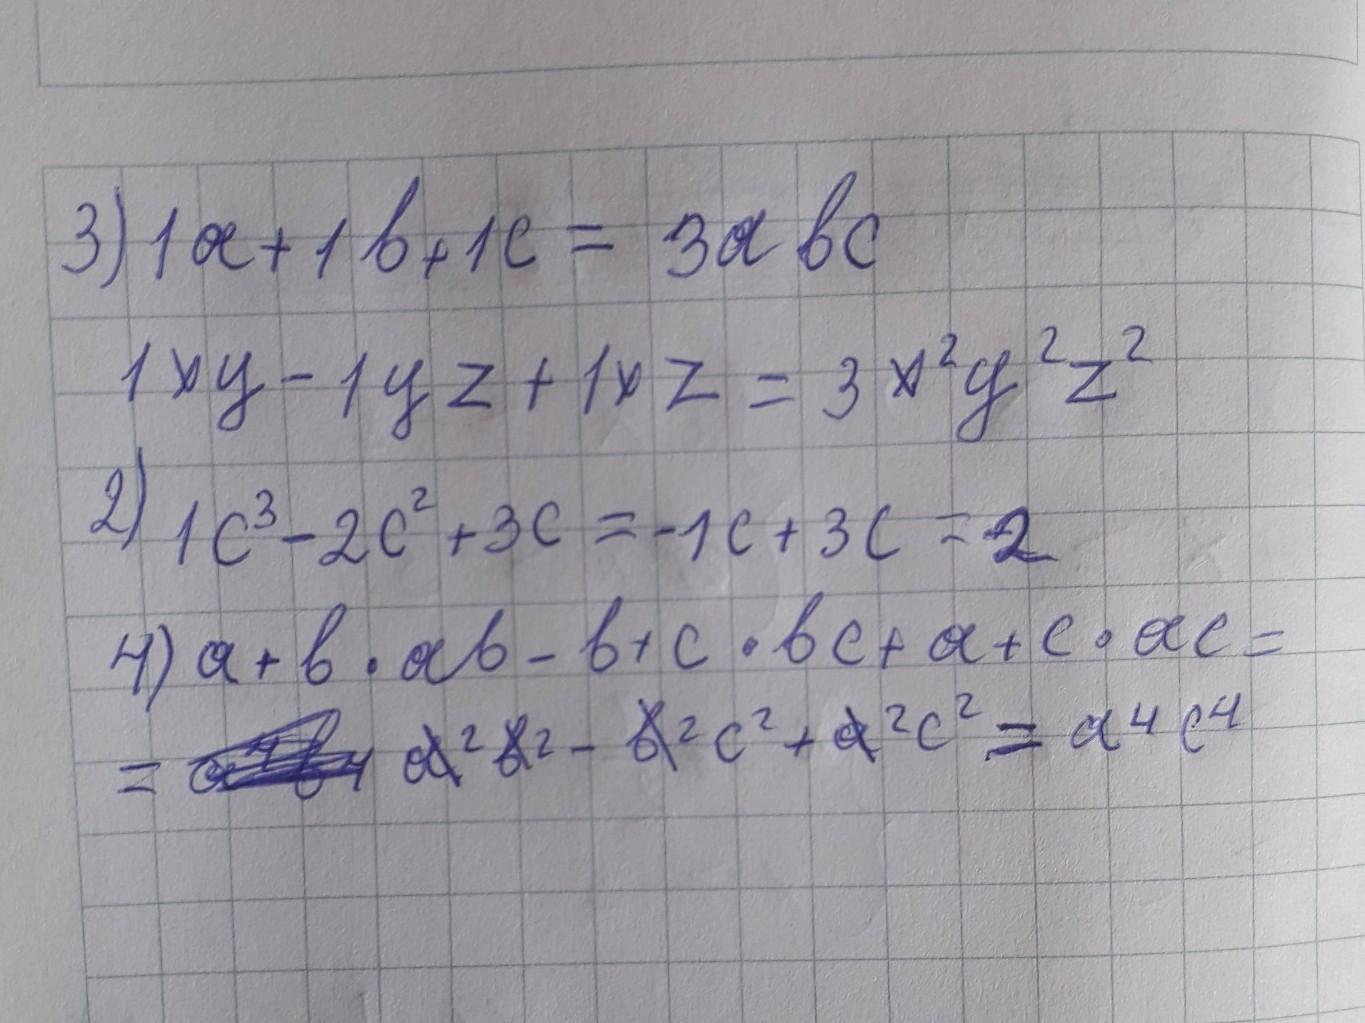 3) 1a + 1b + 1c = 3abc
1xy - 1yz + 1xz = 3x²y²z²
2) 1c³ - 2c² + 3c = -1c + 3c = 2
4) a + b · ab - b + c · bc + a + c · ac =
= a²b² - b²c² + a²c² = a⁴c⁴